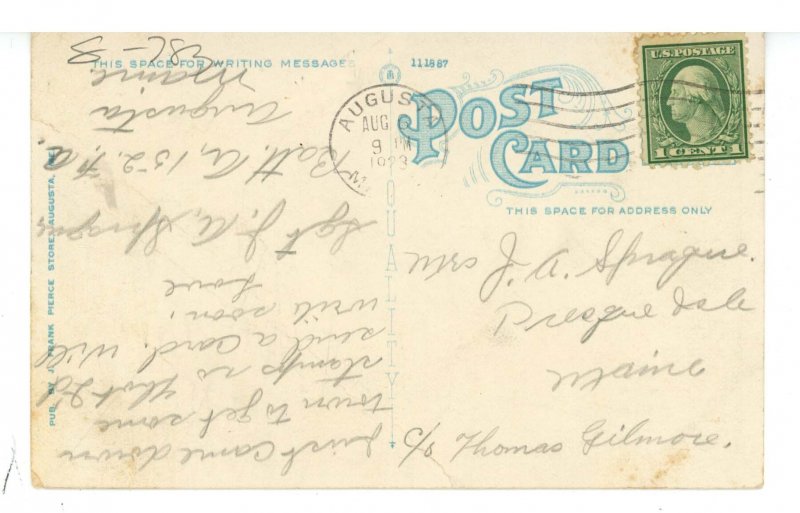 THIS SPACE FOR WRITING MESSAGES
111887
POST
CARD
THIS SPACE FOR ADDRESS ONLY
U.S. POSTAGE
1 CENT 1
AUGUSTA
AUG
9 PM
1923
QUALITY
PUB. BY J. FRANK PIERCE STORE, AUGUSTA, ME.
Just came down
town to get some
stamps so that I'd
send a card. Will
write soon.
Love
Sgt J. A. Sprague
Batt. A, 152. F.A.
Augusta
Maine
J. A. Sprague.
Presque Isle
Maine
c/o Thomas Gilmore.